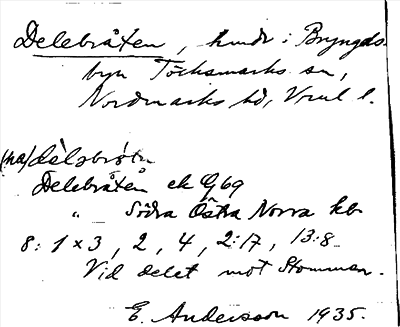 Delebråten, hmdr i Bryngels-
byn Töcksmarks sn,
Nordmarks hd, Vrml l.
(pa) dèlabrǿtn
Delebråten ek Q69
" Södra Östra Norra kb
8: 1x3, 2, 4, 2:17, 13:8
Vid delet mot Stommen.
E. Andersson 1935.